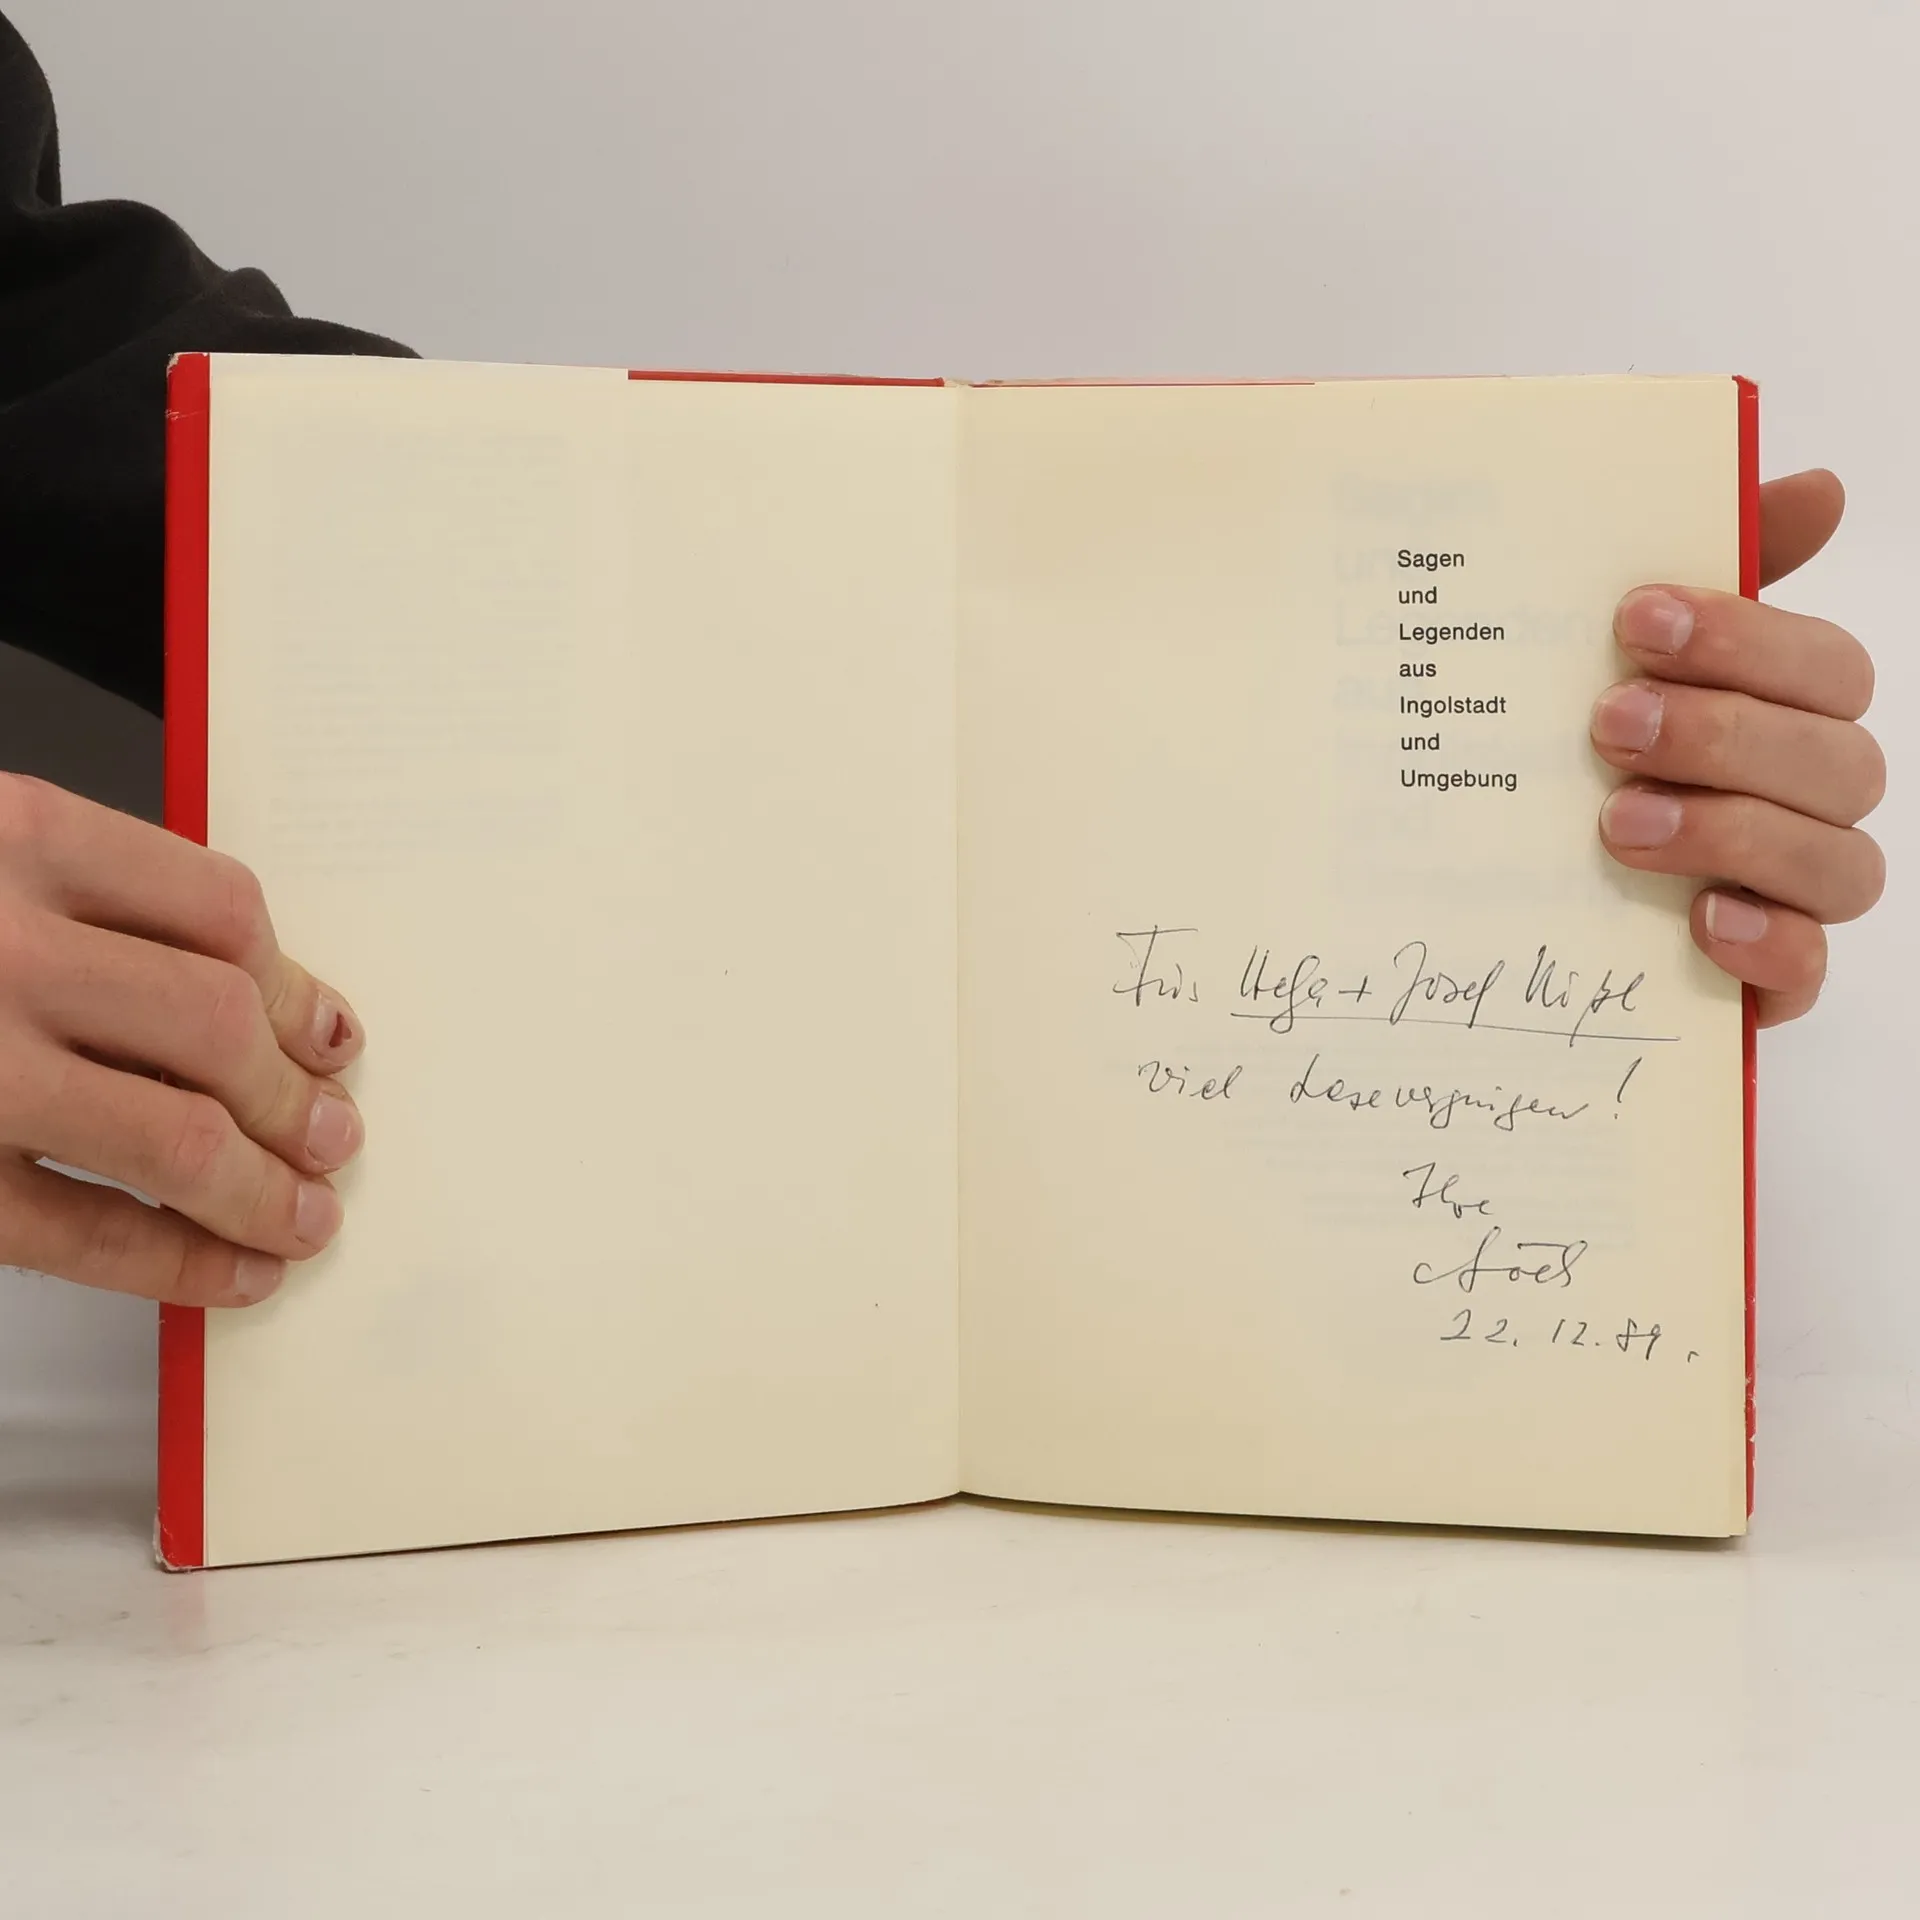 Sagen
und
Legenden
aus
Ingolstadt
und
Umgebung
Für Helga + Josef
viel Lesevergnügen!
Ihre
22.12.89.